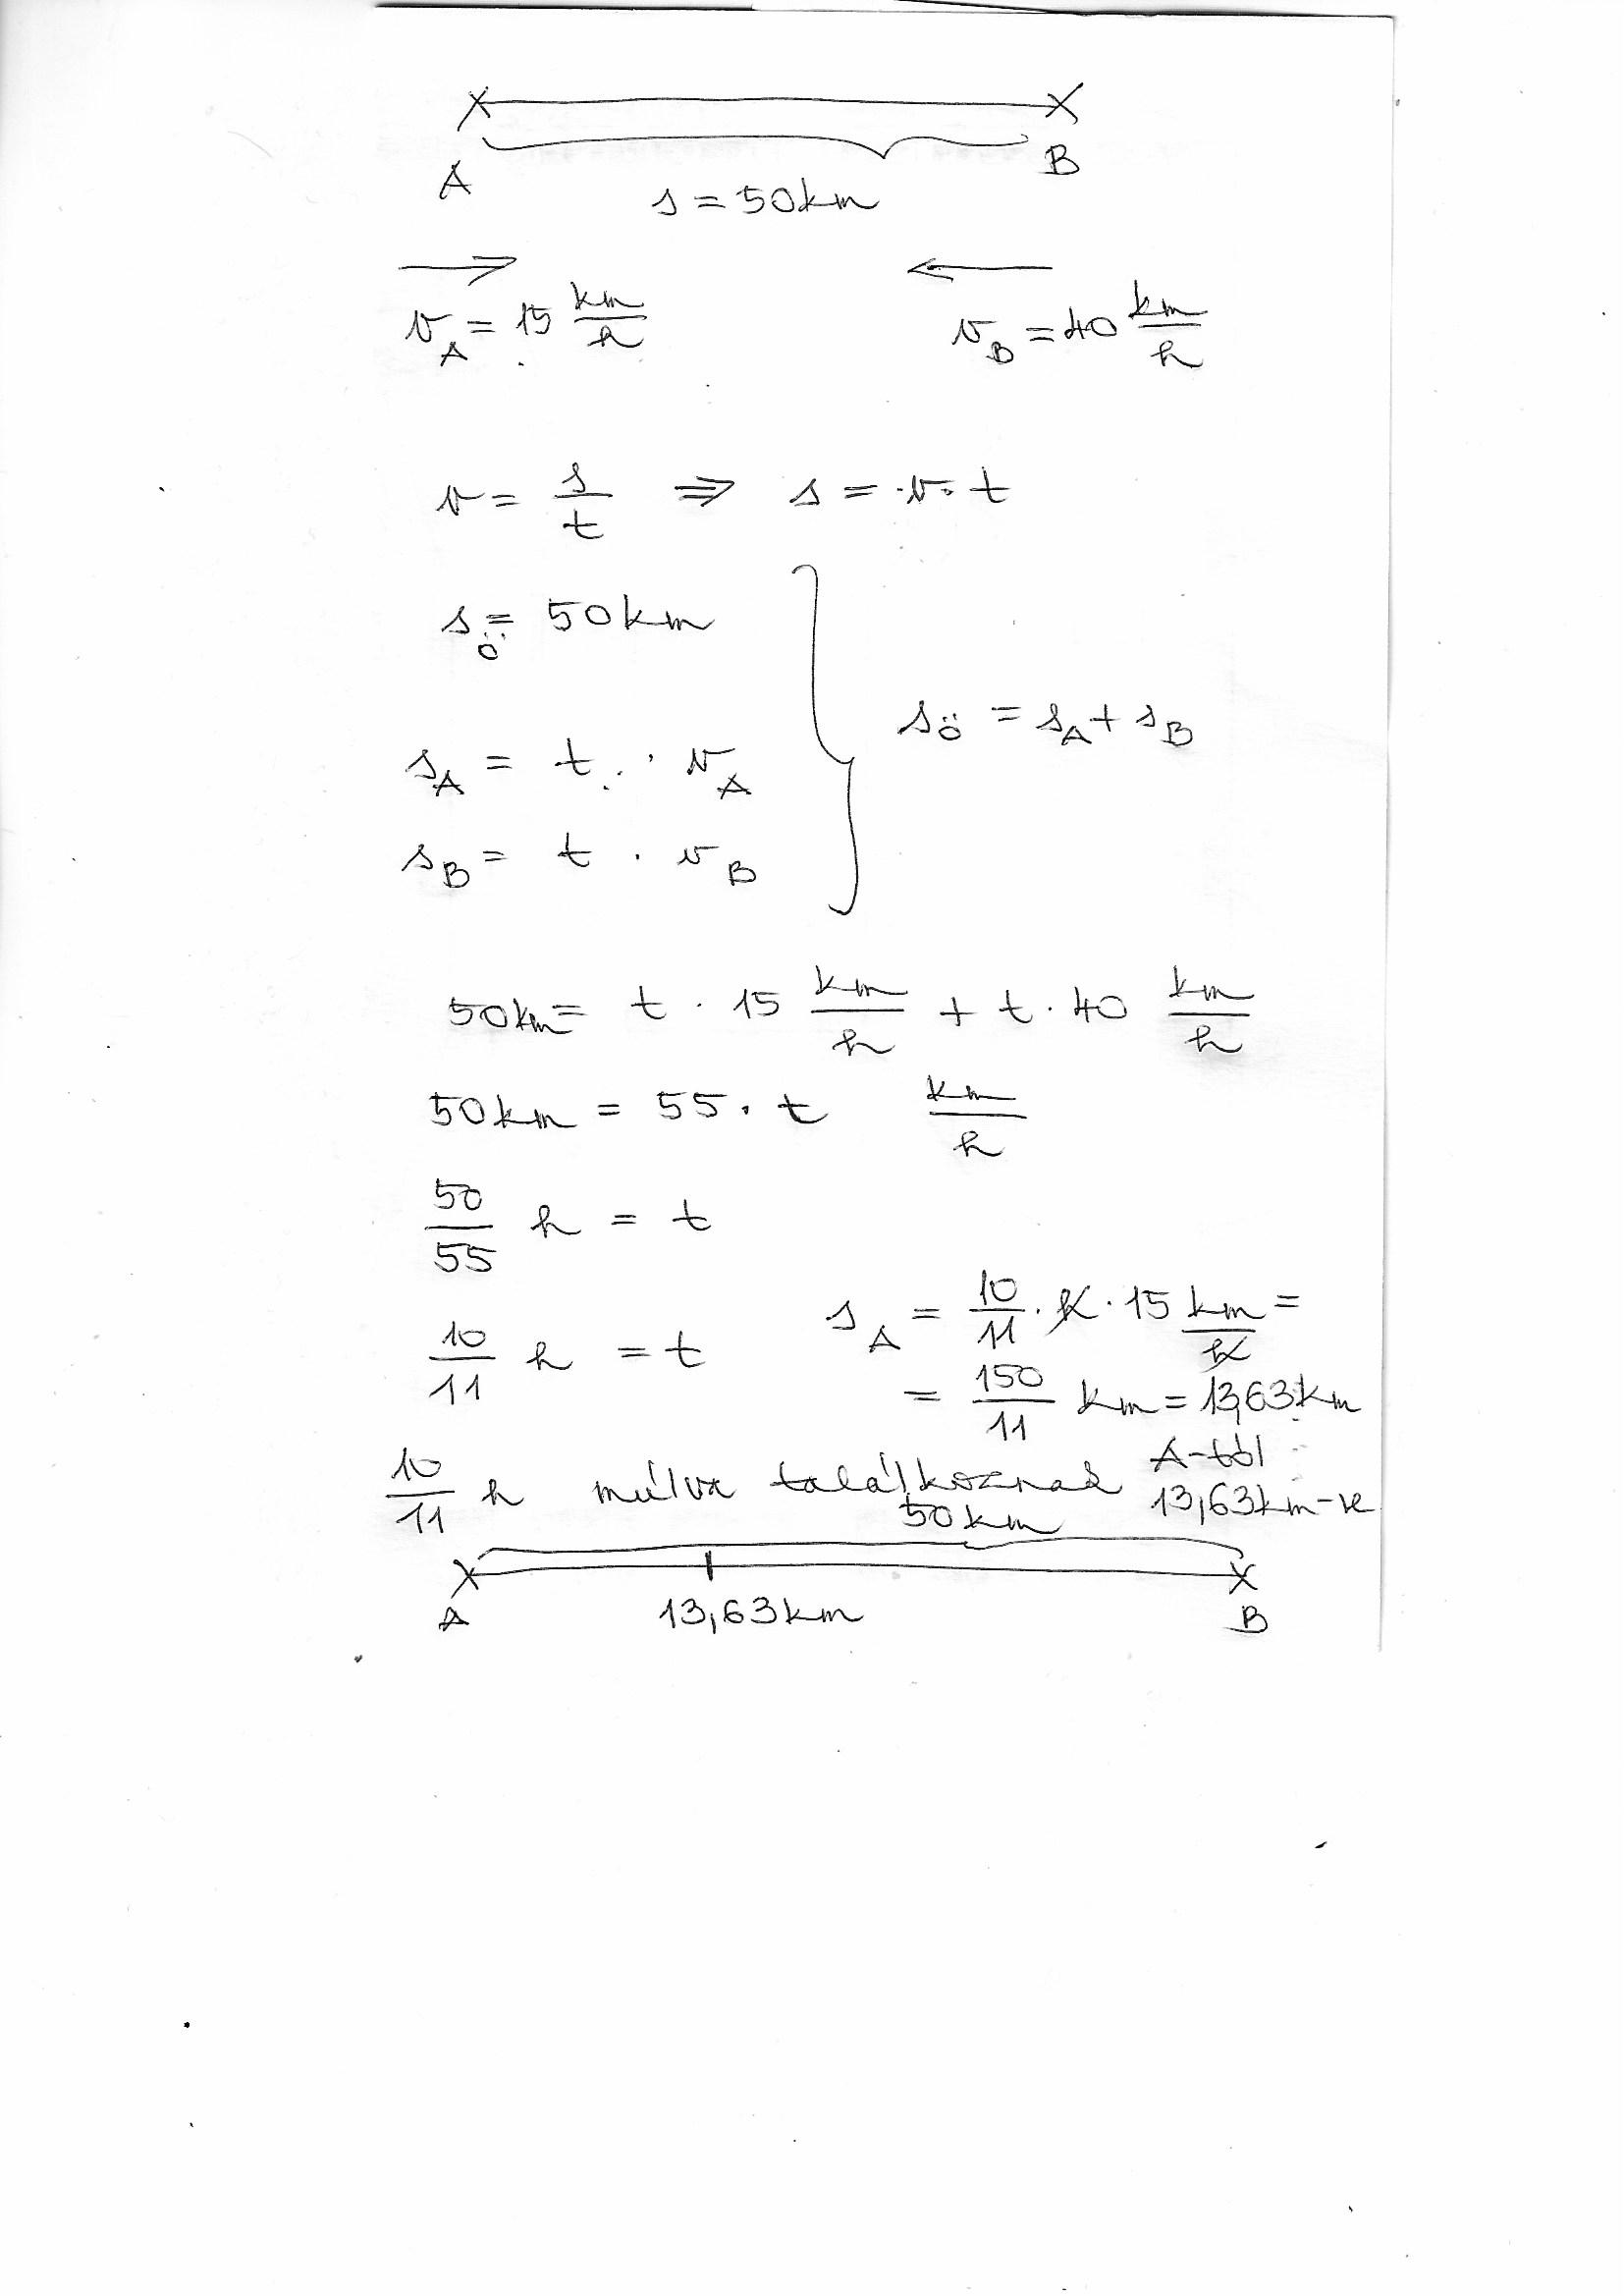 A B
s = 50km
v_A = 15 km/h v_B = 40 km/h
v = s/t ⇒ s = v · t
s_ö = 50km
s_ö = s_A + s_B
s_A = t · v_A
s_B = t · v_B
50km = t · 15 km/h + t · 40 km/h
50km = 55 · t km/h
50/55 h = t
10/11 h = t
s_A = 10/11 · h · 15 km/h =
= 150/11 km = 13,63km
10/11 h múlva találkoznak A-tól
13,63km-re
50km
A 13,63km B